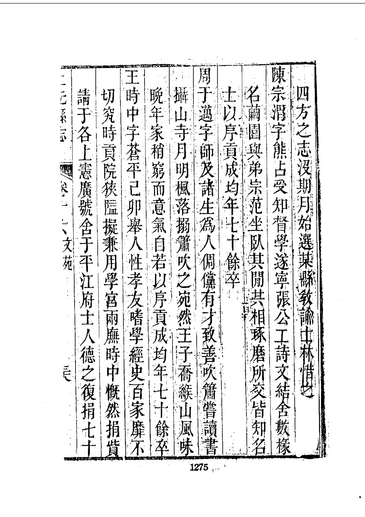 四方之志沒期月始選某縣敎諭士林惜之
陳宗渭字熊占受知督學遂寧張公工詩文結舍數椽
名藺園與弟宗范坐臥其閒共相琢磨所交皆知名
士以序貢成均年七十餘卒
周于邁字師及諸生爲人倜儻有才致善吹簫嘗讀書
攝山寺月明楓落搦簫吹之宛然王子喬緱山風味
晚年家稍窮而意氣自若以序貢成均年七十餘卒
王時中字蒼平己卯舉人性孝友嗜學經史百家靡不
切究時貢院狹隘擬兼用學宮兩廡時中慨然捐貲
請于各上憲廣號舍于平江府士人德之復捐七十
上元縣志
卷十六文苑
1275